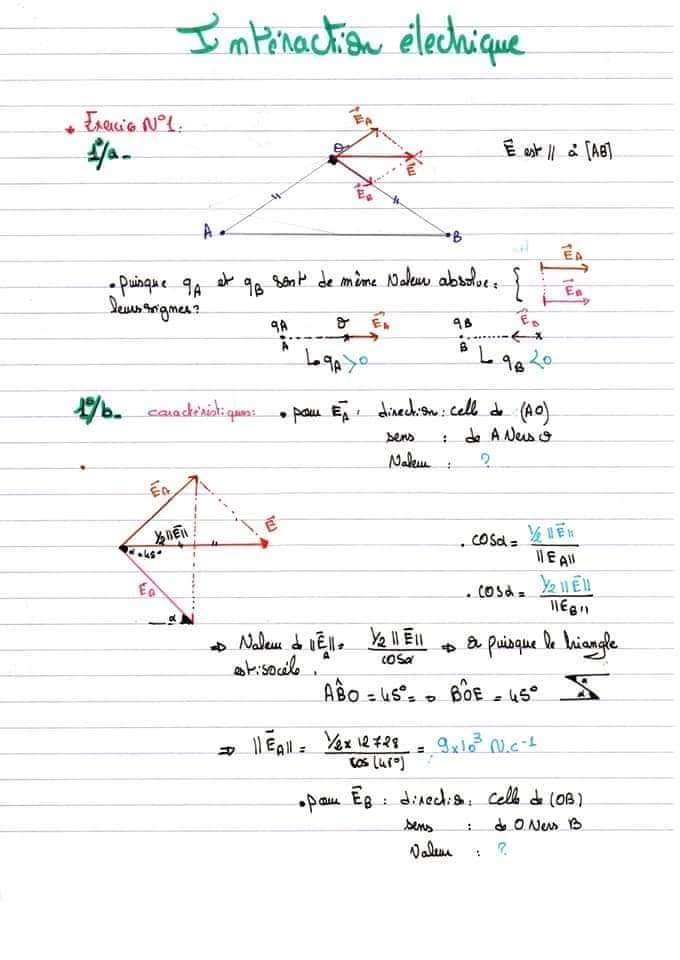 Intéraction électrique
* Exercice N°1:
1°/a-
E⃗A
O
E⃗
E⃗B
A
B
E⃗ est // à [AB]
• Puisque qA et qB sont de même Valeur absolue: {
E⃗A
E⃗B
leurs signes?
qA O E⃗A
A
↳ qA > 0
qB E⃗B
B
↳ qB < 0
1°/b- caractéristiques: • pour E⃗A : direction : celle de (AO)
sens : de A Vers O
Valeur : ?
E⃗A
½ ||E⃗||
E⃗
α=45°
α
• cosα = ½ ||E⃗|| / ||EA||
• cosα = ½ ||E⃗|| / ||EB||
⇒ Valeur de ||E⃗A|| = ½ ||E⃗|| / cosα ⇒ or puisque le triangle
est isocèle,
AB̂O = 45° ⇒ BÔE = 45°
α
α
⇒ ||E⃗A|| = ½ x 12728 / cos(45°) = 9x10³ N.c⁻¹
• pour E⃗B : direction : celle de (OB)
sens : de O Vers B
Valeur : ?